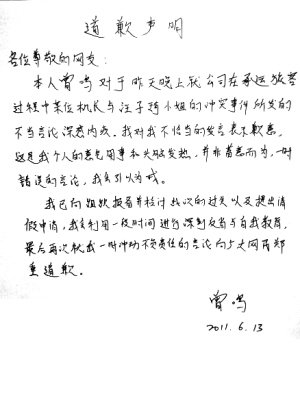 道歉声明
各位尊敬的网友：
本人曾鸣对于昨天晚上就公司在承运旅客
过程中某位机长与汪子琦小姐的冲突事件所发的
不当言论深感内疚。我对我不恰当的发言表示歉意，
这是我个人的意见用事和头脑发热，并非蓄意而为，一时
错误的言论，我会引以为戒。
我已向组织检讨此次的过失以及提出请
假申请，我会利用一段时间进行深刻反省与自我教育，
最后再次就我一时冲动不负责任的言论向广大网友郑
重道歉。
曾鸣
2011.6.13